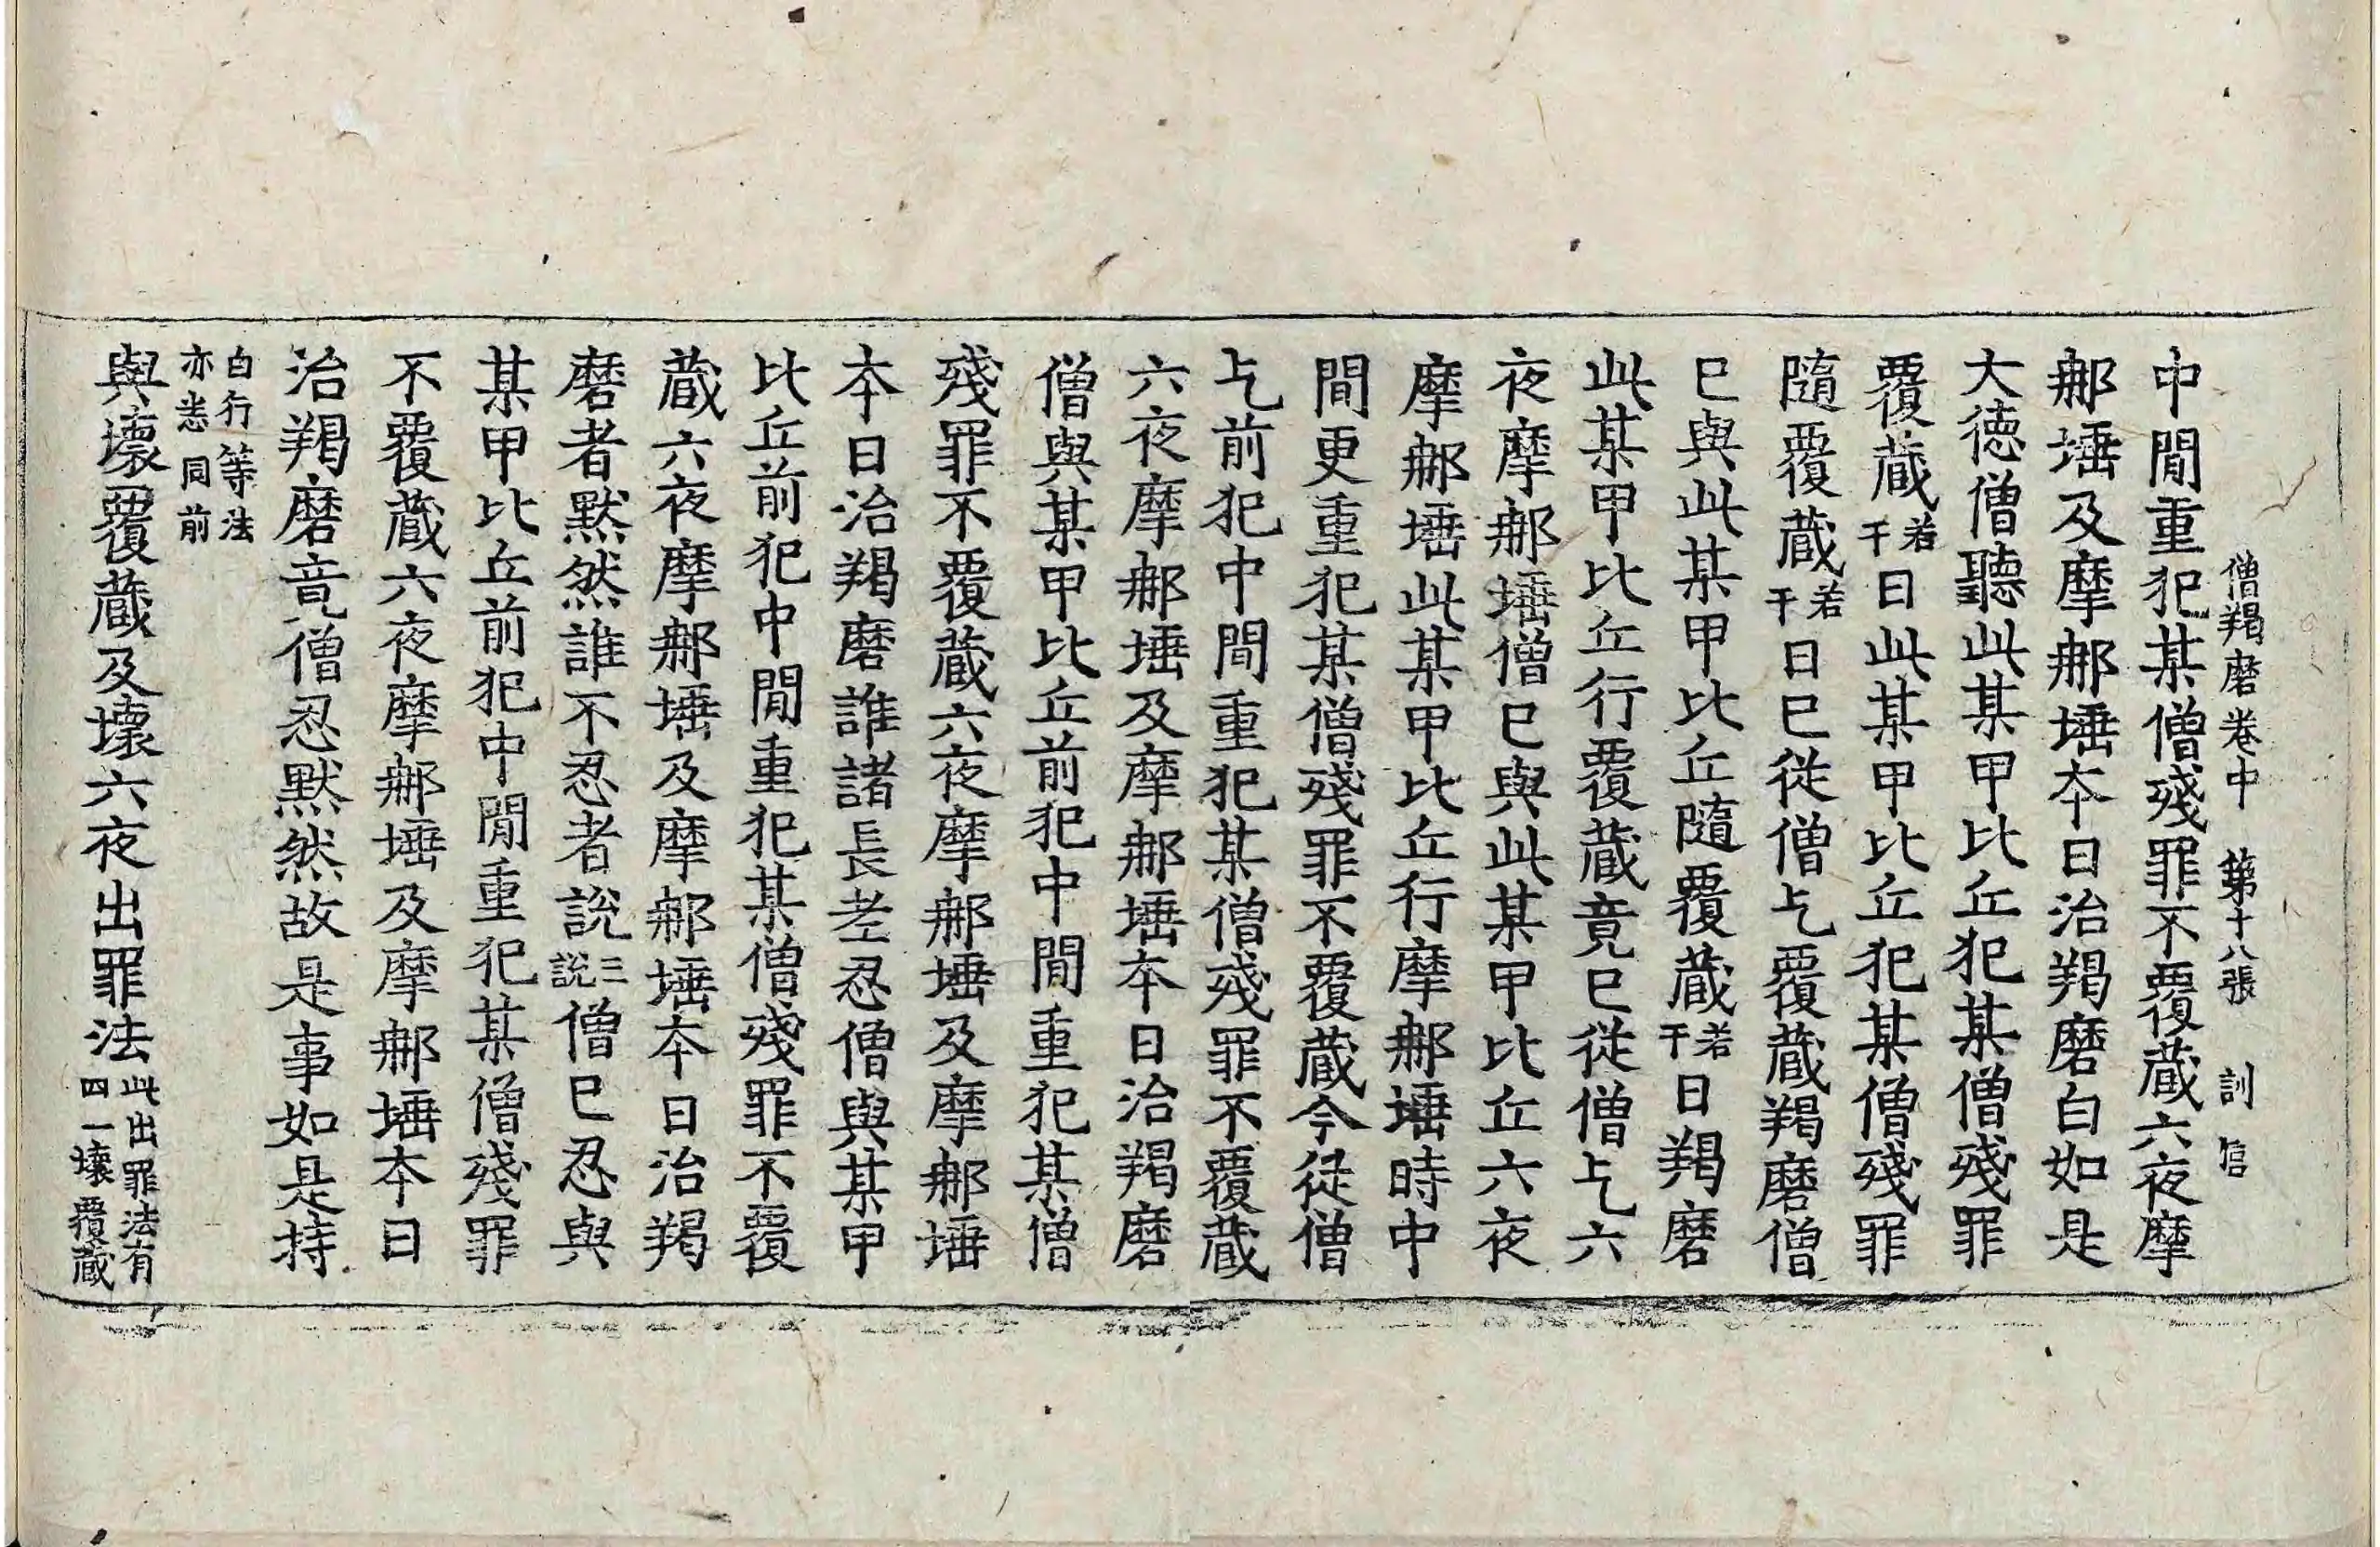 僧羯磨卷中 第十八張 訓 信
中閒重犯某僧殘罪不覆蔵六夜摩
𨚗埵及摩𨚗埵夲日治羯磨白如是
大徳僧聽此某甲比丘犯某僧殘罪
覆蔵若干日此某甲比丘犯某僧殘罪
隨覆蔵若干日巳從僧乞覆蔵羯磨僧
巳與此某甲比丘隨覆蔵若干日羯磨
此某甲比丘行覆蔵竟巳從僧乞六
夜摩𨚗埵僧巳與此某甲比丘六夜
摩𨚗埵此某甲比丘行摩𨚗埵時中
間更重犯某僧殘罪不覆蔵今從僧
乞前犯中間重犯某僧殘罪不覆蔵
六夜摩𨚗埵及摩𨚗埵夲日治羯磨
僧與某甲比丘前犯中閒重犯某僧
殘罪不覆蔵六夜摩𨚗埵及摩𨚗埵
夲日治羯磨誰諸長老忍僧與某甲
比丘前犯中閒重犯某僧殘罪不覆
蔵六夜摩𨚗埵及摩𨚗埵夲日治羯
磨者黙然誰不忍者說三說僧巳忍與
某甲比丘前犯中閒重犯某僧殘罪
不覆蔵六夜摩𨚗埵及摩𨚗埵夲日
治羯磨竟僧忍黙然故是事如是持
白行等法
亦恙同前
與壞覆蔵及壞六夜出罪法此出罪法有
四一壞覆蔵